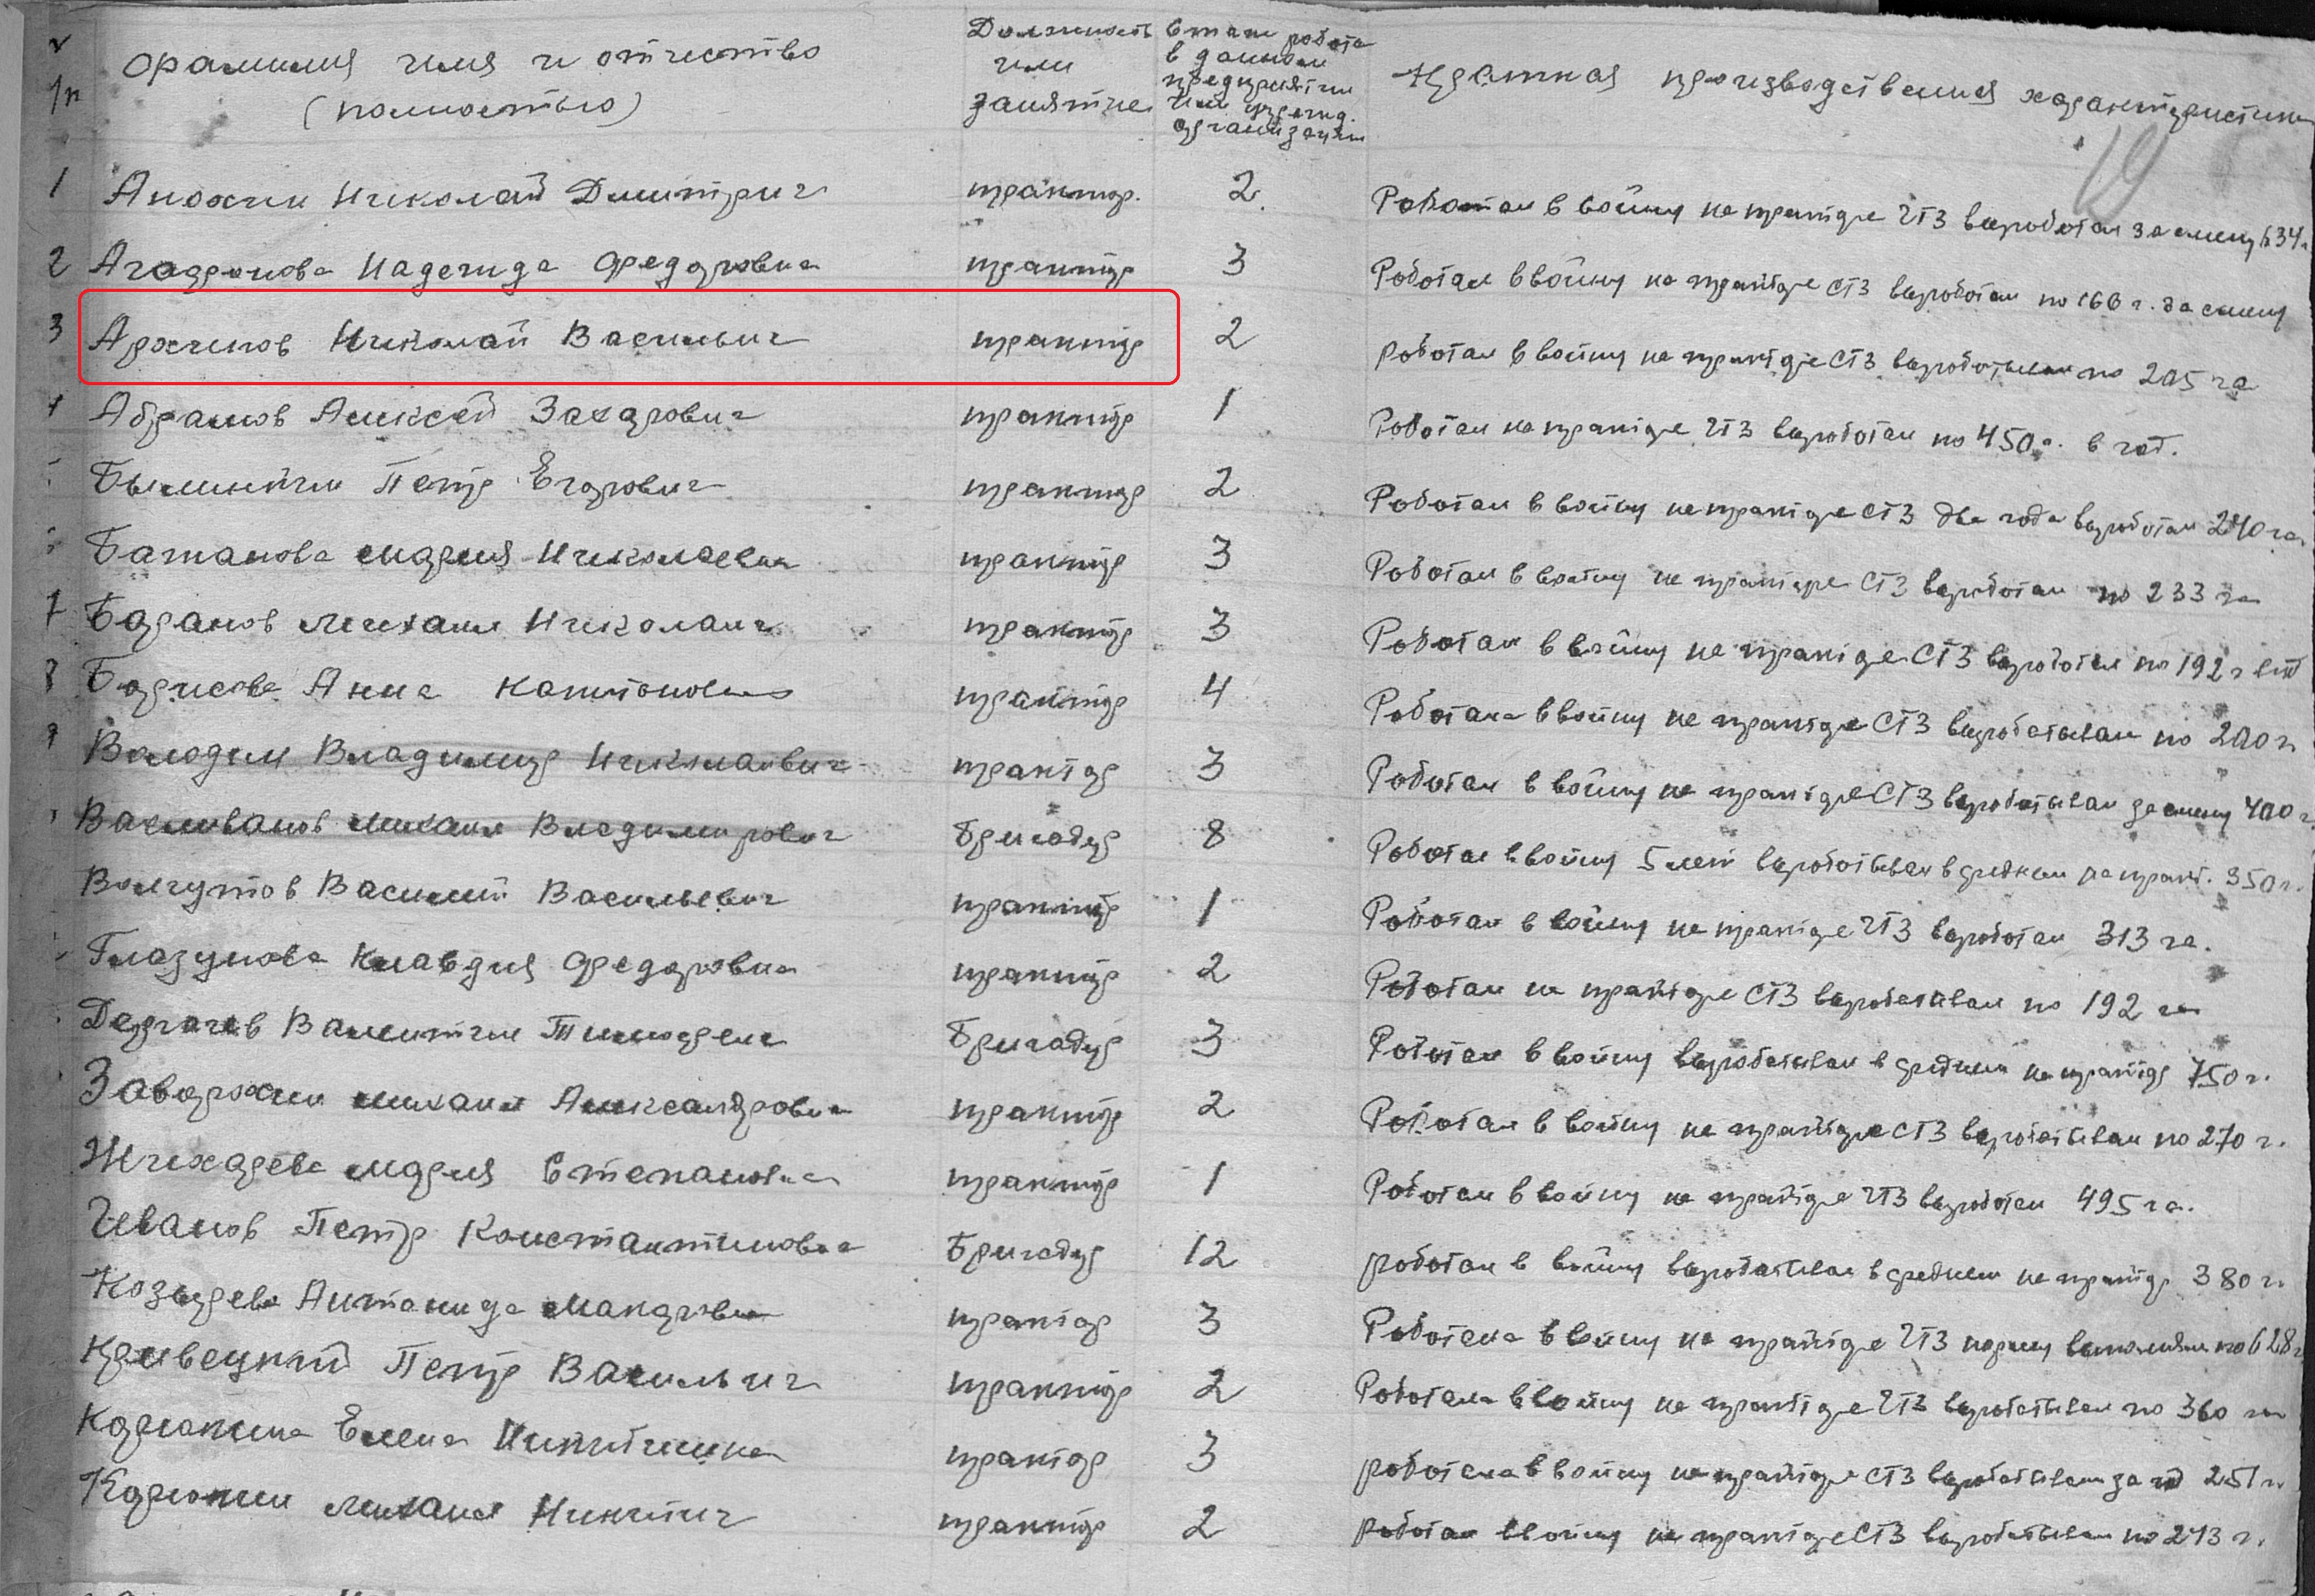 Фамилия имя и отчество (полностью) Должность или занятие Стаж работы в данном предприятии или учрежд. организации Краткая производственная характеристика
19
1 Анохин Николай Дмитрич трактор. 2. Работал в войну на тракторе ЧТЗ выработал за смену 634 г
2 Агафонова Надежда Федоровна трактор 3 Работал в войну на тракторе СТЗ выработал по 166 г. за смену
3 Архипов Николай Васильич трактор 2 работал в войну на тракторе СТЗ выработывал по 205 га
4 Абрамов Алексей Захарович трактор 1 Работал на тракторе ЧТЗ выработал по 450 г. в год.
Петр Егорович трактор 2 Работал в войну на тракторе СТЗ два года выработал 240 га.
Батанова Мария Николаевна трактор 3 Работал в войну на тракторе СТЗ выработал по 233 га
7 Баранов Михаил Николаич трактор 3 Работал в войну на тракторе СТЗ выработал по 192 г
8 Борисова Анна Капитоновна трактор 4 Работала в войну на тракторе СТЗ выработывал по 200 г.
9 Володин Владимир Николаевич трактор 3 Работал в войну на тракторе СТЗ выработывал за смену 400 г.
Михаил Владимирович Бригадир 8 Работал в войну 5 лет выработывал в среднем на тракт. 350 г.
Волгутов Василий Васильевич трактор 1 Работал в войну на тракторе ЧТЗ выработал 313 га.
Глазунова Клавдия Федоровна трактор 2 Работал на тракторе СТЗ выработывал по 192 га
Дергачев Валентин Тимофеич Бригадир 3 Работал в войну выработывал в среднем на трактор 750 г.
Заворохин Михаил Александрович трактор 2 Работал в войну на тракторе СТЗ выработывал по 270 г.
Жихарева Мария Степановна трактор 1 Работал в войну на тракторе ЧТЗ выработал 495 га.
Иванов Петр Константинович Бригадир 12 работал в войну выработывал в среднем на трактор 380 г.
Козырева Антанида Макаровна трактор 3 Работала в войну на тракторе ЧТЗ норму выполняла по 628 г
Кривецкий Петр Васильич трактор 2 Работала в войну на тракторе ЧТЗ выработывал по 360 га
Корякина Елена Никитична трактор 3 работала в войну на тракторе СТЗ выработывал за год 251 г.
Корякин Михаил Никитич трактор 2 работал в войну на тракторе СТЗ выработывал по 243 г.